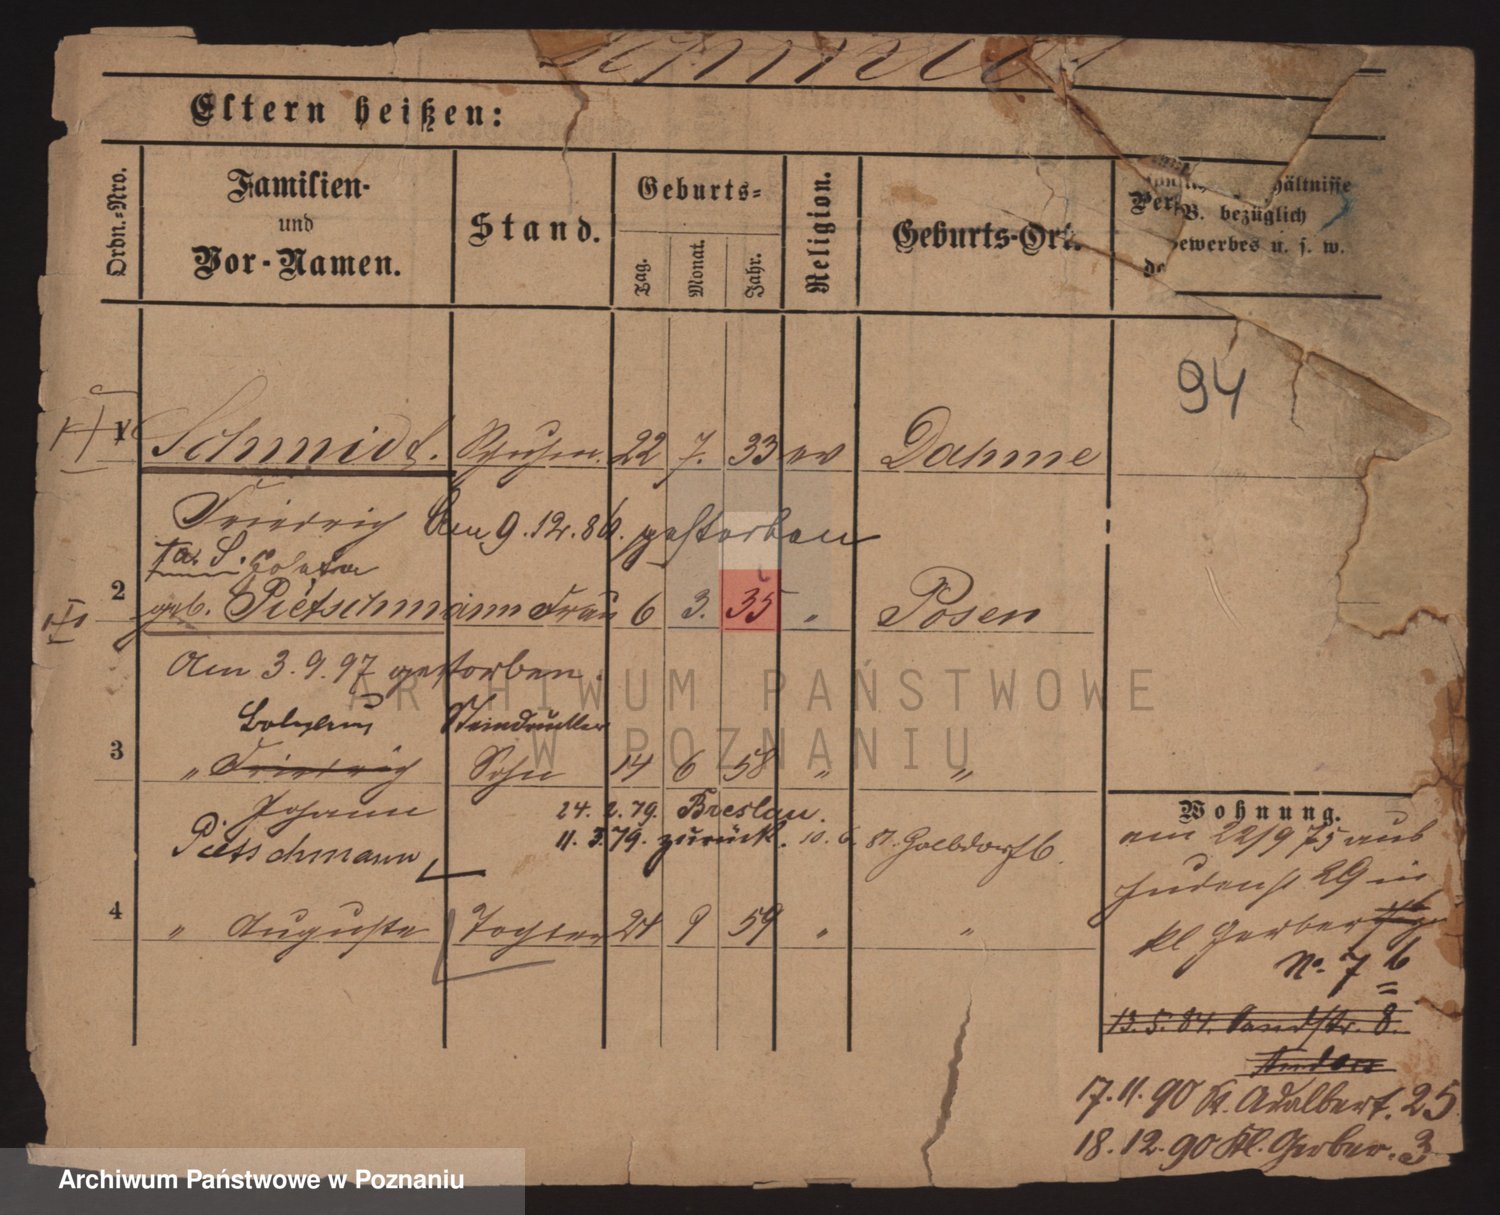 Schmidt
Eltern heißen:
Ordn.-Nro.
Familien-
und
Vor-Namen.
Stand.
Geburts-
Tag.
Monat.
Jahr.
Religion.
Geburts-Ort.
hältnisse
B. bezüglich
ewerbes u. s. w.
94
1 Schmidt. 22 7. 33 ev Dahme
Friedrich Am 9.12.86. gestorben
2 geb. Pietschmann Frau 6 3. 35 " Posen
Am 3.9.97 gestorben.
Steindrucker
3 " Friedrich Sohn 14 6 58 " "
Johann 24.2.79. Breslau.
Pietschmann 11.3.79. zurück. 10.6.
4 " Auguste Tochter 24 9 59 " "
Wohnung.
am 22/9 75 aus
Judenst 29 in
kl Gerberstr
No. 7 b
13.5.84. Sandstr. 8.
17.11.90 St. Adalbert. 25
18.12.90 Kl. Gerber. 3
ARCHIWUM PAŃSTWOWE
W POZNANIU
Archiwum Państwowe w Poznaniu